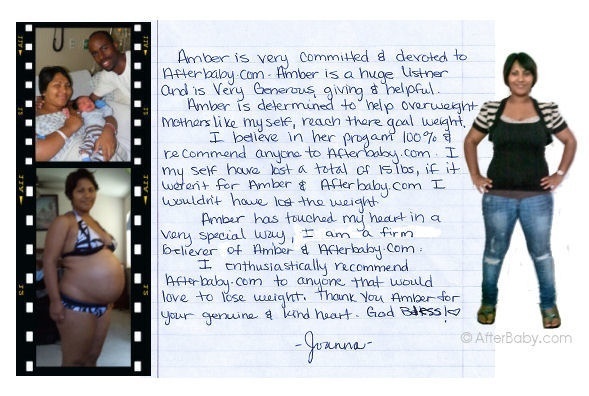 Amber is very committed & devoted to
Afterbaby.com. Amber is a huge listner
and is very Generous, giving & helpful.
Amber is determined to help overweight
mothers like my self, reach there goal weight.
I believe in her progam 100% &
recommend anyone to Afterbaby.com. I
my self have lost a total of 15 lbs, if it
weren't for Amber & Afterbaby.com I
wouldn't have lost the weight
Amber has touched my heart in a
very special way, I am a firm
believer of Amber & Afterbaby.com.
I enthusiastically recommend
Afterbaby.com to anyone that would
love to lose weight. Thank You Amber for
your genuine & kind heart. God Bless!♡
-Joanna-
© AfterBaby.com